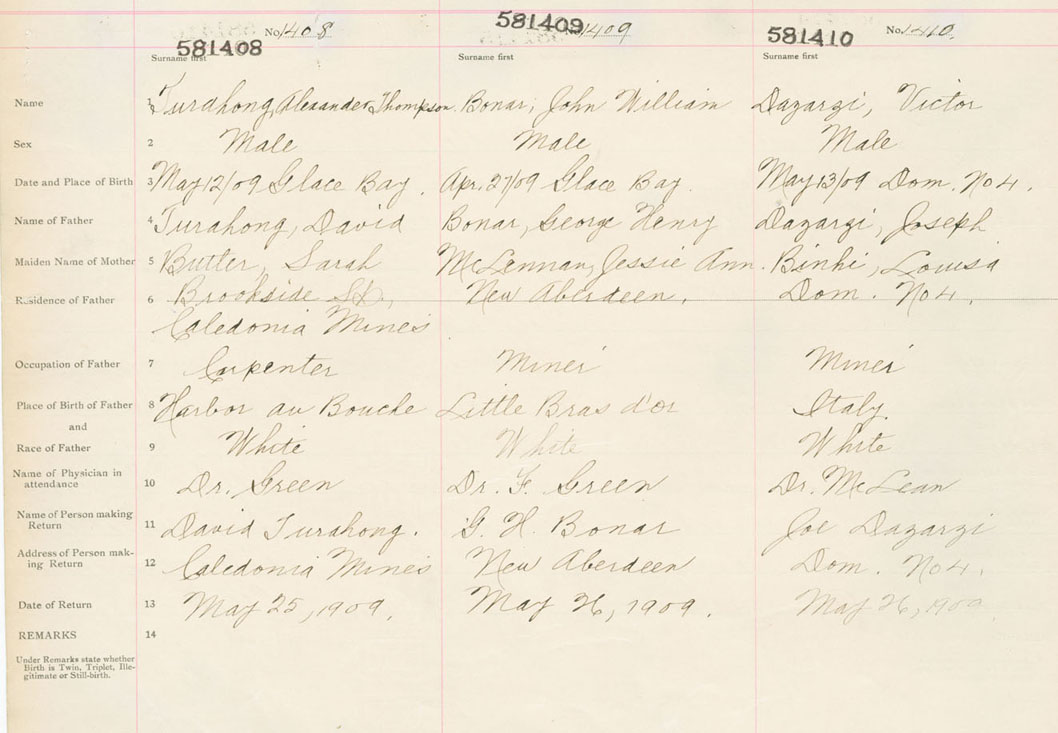 No. 1408 No. 1409 No. 1410
581408 581409 581410
Surname first Surname first Surname first
Name 1 Turahong, Alexander Thompson. Bonar, John William Dazargi, Victor
Sex 2 Male Male Male
Date and Place of Birth 3 May 12/09 Glace Bay. Apr. 27/09 Glace Bay. May 13/09 Dom. No 4.
Name of Father 4 Turahong, David Bonar, George Henry Dazargi, Joseph
Maiden Name of Mother 5 Butler, Sarah McLennan, Jessie Ann. Binhi, Louisa
Residence of Father 6 Brookside St., New Aberdeen. Dom. No 4.
Caledonia Mines
Occupation of Father 7 Carpenter Miner Miner
Place of Birth of Father 8 Harbor au Bouche Little Bras d'or Italy.
and
Race of Father 9 White White White
Name of Physician in
attendance 10 Dr. Green Dr. F. Green Dr. McLean
Name of Person making
Return 11 David Turahong. G. H. Bonar Joe Dazargi
Address of Person mak-
ing Return 12 Caledonia Mines New Aberdeen Dom. No 4.
Date of Return 13 May 25, 1909. May 26, 1909. May 26, 1909
REMARKS 14
Under Remarks state whether
Birth is Twin, Triplet, Ille-
gitimate or Still-birth.